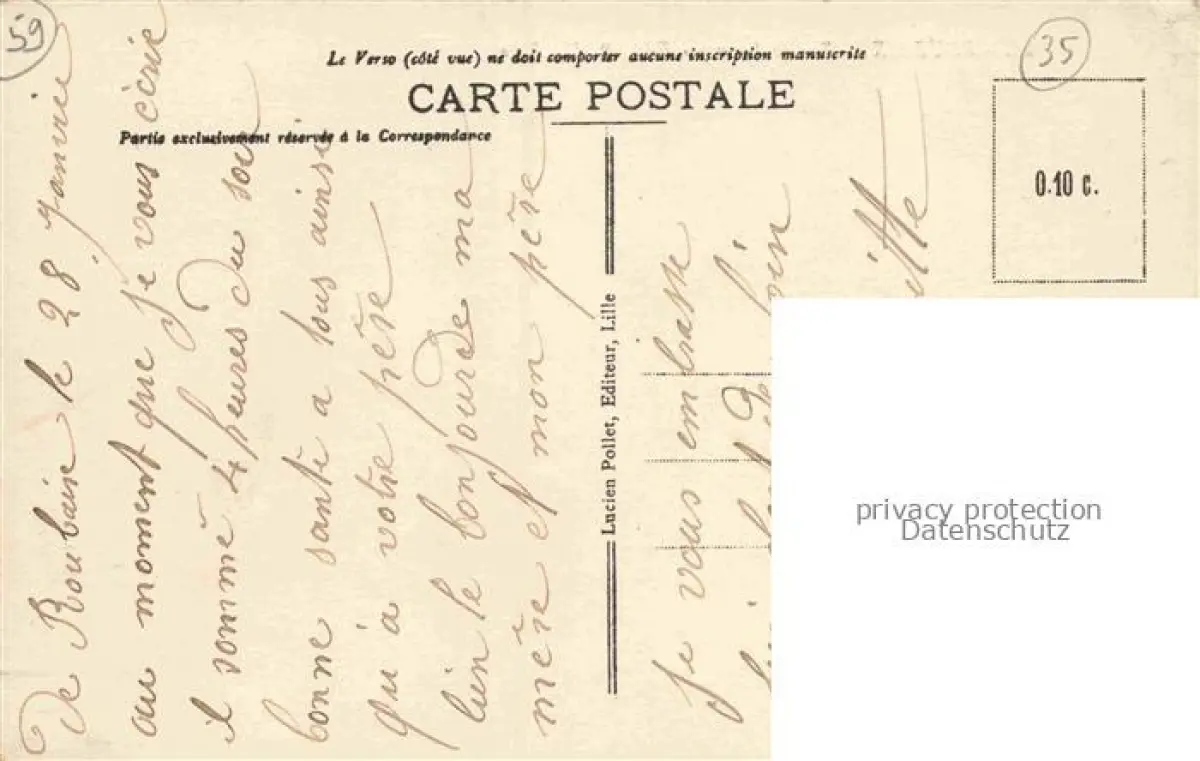 59
35
Le Verso (côté vue) ne doit comporter aucune inscription manuscrite
CARTE POSTALE
Partie exclusivement réservée à la Correspondance
0.10 c.
Lucien Pollet, Editeur, Lille
De Roubaise le 28 Janvie
au moment que je vous ècrie
il somme 4 heures du soir
bonne santè a tous ainsi
qu'a votre père
bien le bonjour de ma
mère et mon père
Je vous embrasse
privacy protection
Datenschutz